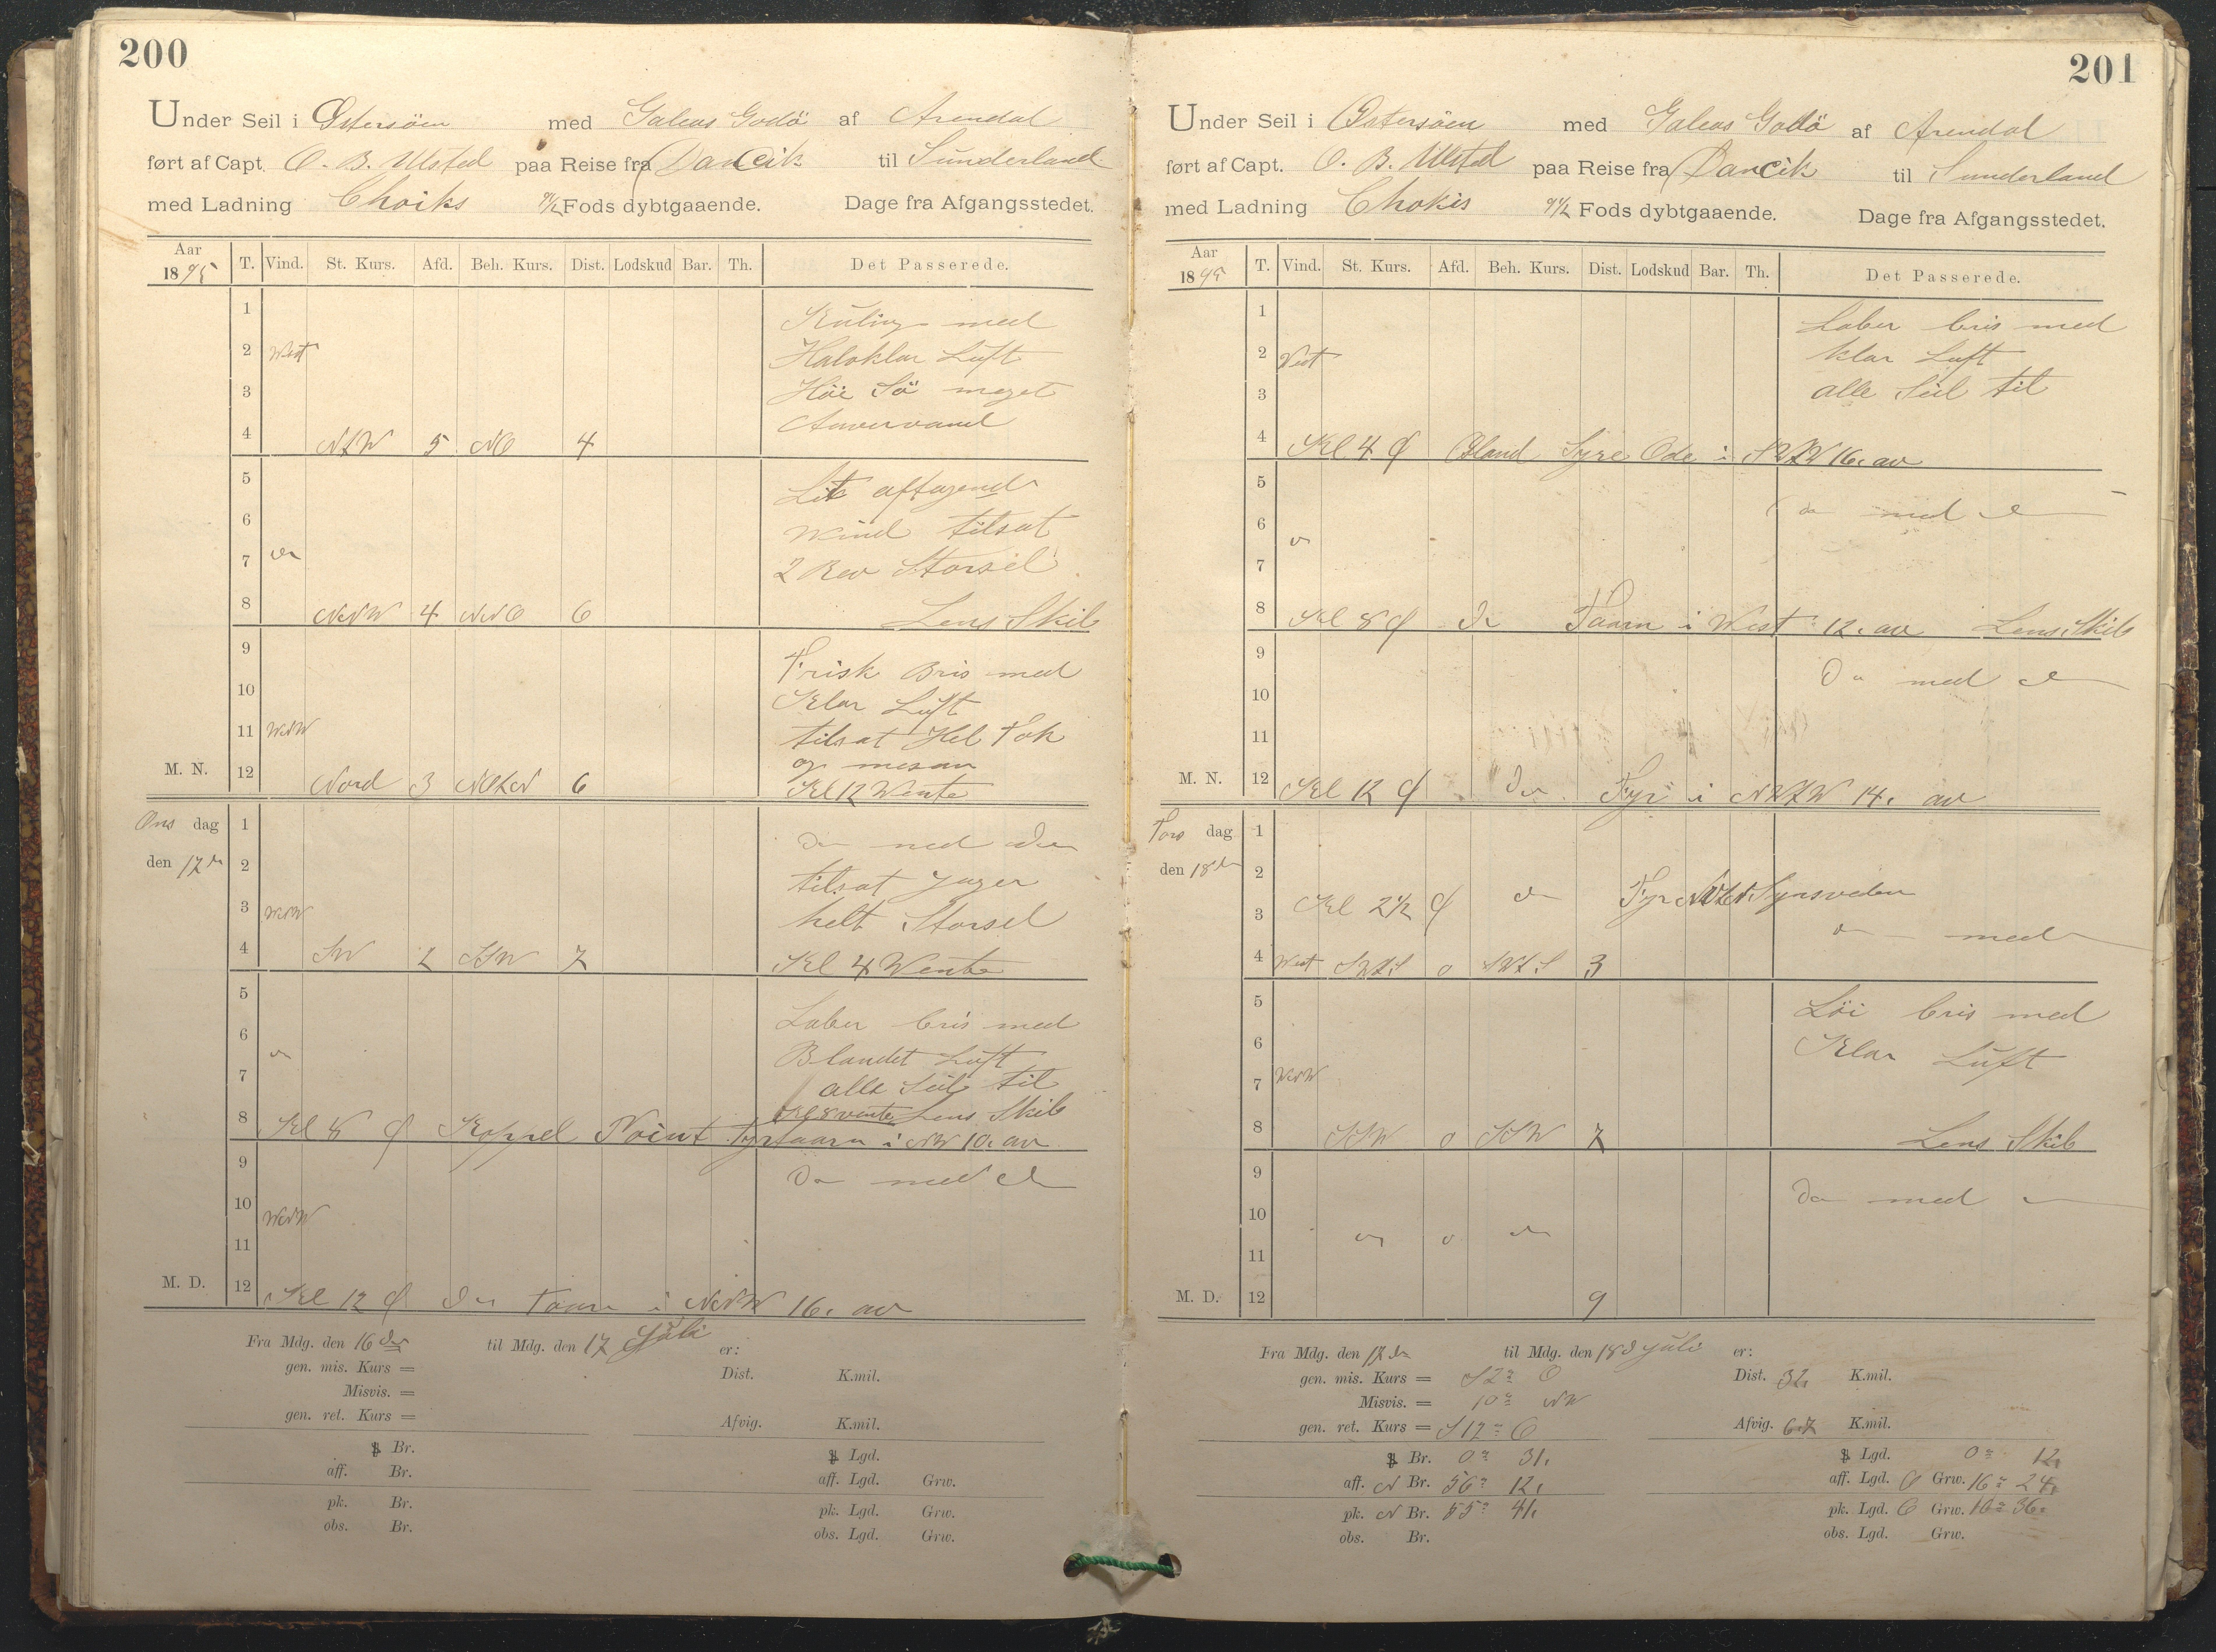 200
Under Seil i Østersöen med Galeas Godö af Arendal
ført af Capt. O. B. Ulsted paa Reise fra Dancik til Sunderland
med Ladning Choiks 9 1/2 Fods dybtgaaende. Dage fra Afgangsstedet.
Aar 1895 T. Vind. St. Kurs. Afd. Beh. Kurs. Dist. Lodskud Bar. Th. Det Passerede.
1 Kuling med
2 West Halvklar Luft
3 Höi Sö meget
4 NZW 5 NO 4
5 Lit aftagende
6 Wind tilsat
7 do 2 Rev Storseil
8 NNW 4 NNO 6 Lens Skib
9 Frisk Bris med
10 Klar Luft
11 WNW tilsat Hel Fok
og mesan
M. N. 12 Nord 3 NOZN 6 Kl 12 Wente
Ons dag 1 Do med do
den 17de 2 tilsat Jager
3 WNW helt Storseil
4 SW 2 SSW 7 Kl 4 Wente
5 Laber bris med
6 do Blandet Luft
7 alle Seil til
Kl 8 vente Lens Skib
8 Kl 8 Ø Koppel Point Fyrtaarn i NW 10. av
9 Do med do
10 WNW
11
M. D. 12 Kl 12 Ø do Taarn i NNW 16. av
Fra Mdg. den 16de til Mdg. den 17 Juli er:
gen. mis. Kurs = Dist. K.mil.
Misvis. =
gen. ret. Kurs = Afvig. K.mil.
Br. Lgd.
aff. Br. aff. Lgd. Grw.
pk. Br. pk. Lgd. Grw.
obs. Br. obs. Lgd. Grw.
201
Under Seil i Østersöen med Galeas Godö af Arendal
ført af Capt. O. B. Ulsted paa Reise fra Dancik til Sunderland
med Ladning Chokis 9 1/2 Fods dybtgaaende. Dage fra Afgangsstedet.
Aar 1895 T. Vind. St. Kurs. Afd. Beh. Kurs. Dist. Lodskud Bar. Th. Det Passerede.
1 Laber bris med
2 West klar Luft
3 alle Seil til
4 Kl 4 Ø Øland Syre Ode i SWZW 16. av
5
6 do do med do
7
8 Kl 8 Ø do Taarn i West 12. av Lens Skib
9 Do med do
10
11
M. N. 12 Kl 12 Ø do Fyr i NWZW 14. av
Tors dag 1
den 18de 2
3 Kl 2 1/2 Ø do Fyr Synsveden
do med
4 West SWZS 0 SWZS 3
5 Löi bris med
6 Klar Luft
7 WNW
8 SSW 0 SSW 7 Lens Skib
9 Do med do
10
11 do 0 do
M. D. 12 9
Fra Mdg. den 17de til Mdg. den 18d Juli er:
gen. mis. Kurs = S 2° O Dist. 32, K.mil.
Misvis. = 10° NW
gen. ret. Kurs = S 12° O Afvig. 6.7 K.mil.
Br. 0° 31, Lgd. 0° 12,
aff. N Br. 56° 12, aff. Lgd. O Grw. 16° 24,
pk. N Br. 55° 41, pk. Lgd. O Grw. 16° 36,
obs. Br. obs. Lgd. Grw.